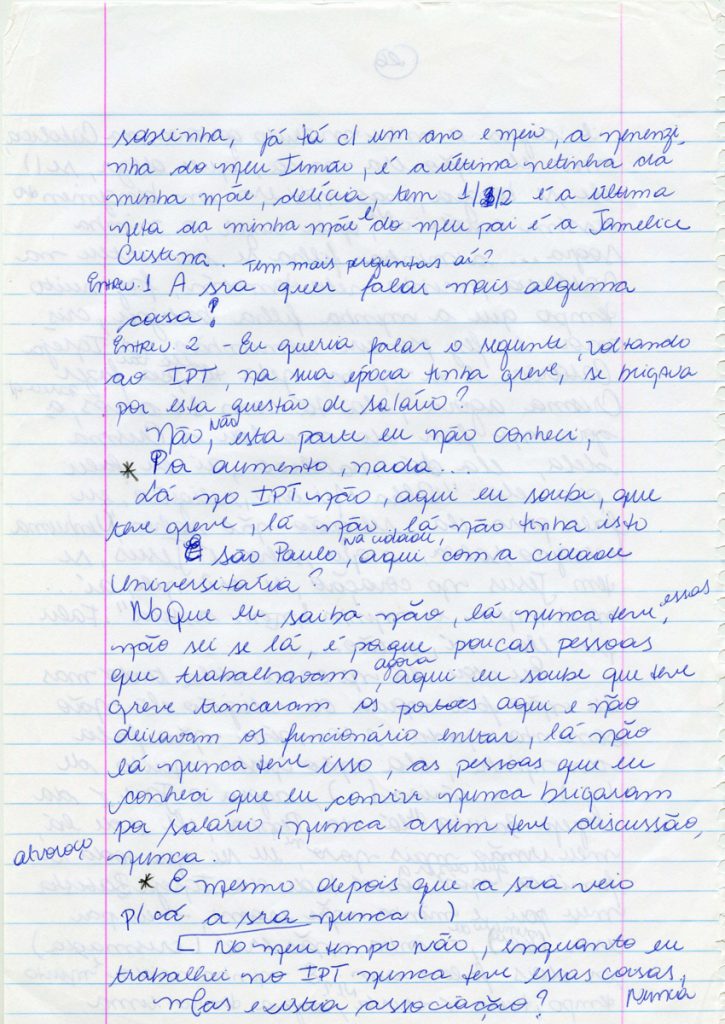 já tá c/ um ano e meio, a nenenzi
nha do meu Irmão, é a última netinha da
minha mãe, delícia, tem 1/2 é a última
neta da minha mãe e do meu pai é a Jamelice
Cristina.. Tem mais perguntas aí?
Entrev. 1 A sra quer falar mais alguma
coisa?
Entrev. 2 - Eu queria falar o seguinte, voltando
ao IPT, na sua época tinha greve, se brigava
por esta questão de salário?
Não, não, esta parte eu não conheci,
* Por aumento, nada...
Lá no IPT não, aqui eu soube, que
teve greve, lá não, lá não tinha isto
São Paulo, na cidade, aqui com a cidade
Universitária?
No Que eu saiba não, lá nunca teve, essas
não sei se lá, é poque poucas pessoas
que trabalhavam, agora aqui eu soube que teve
greve trancaram os portoes aqui e não
deixavam os funcionário entrar, lá não
lá nunca teve isso, as pessoas que eu
conheci que eu convivi nunca brigaram
por salário, nunca assim teve discussão,
alvoroço nunca.
* E mesmo depois que a sra veio
p/ cá a sra nunca ( )
[ No meu tempo não, enquanto eu
trabalhei no IPT nunca teve essas coisas,
Nunca
Mas existia associação?